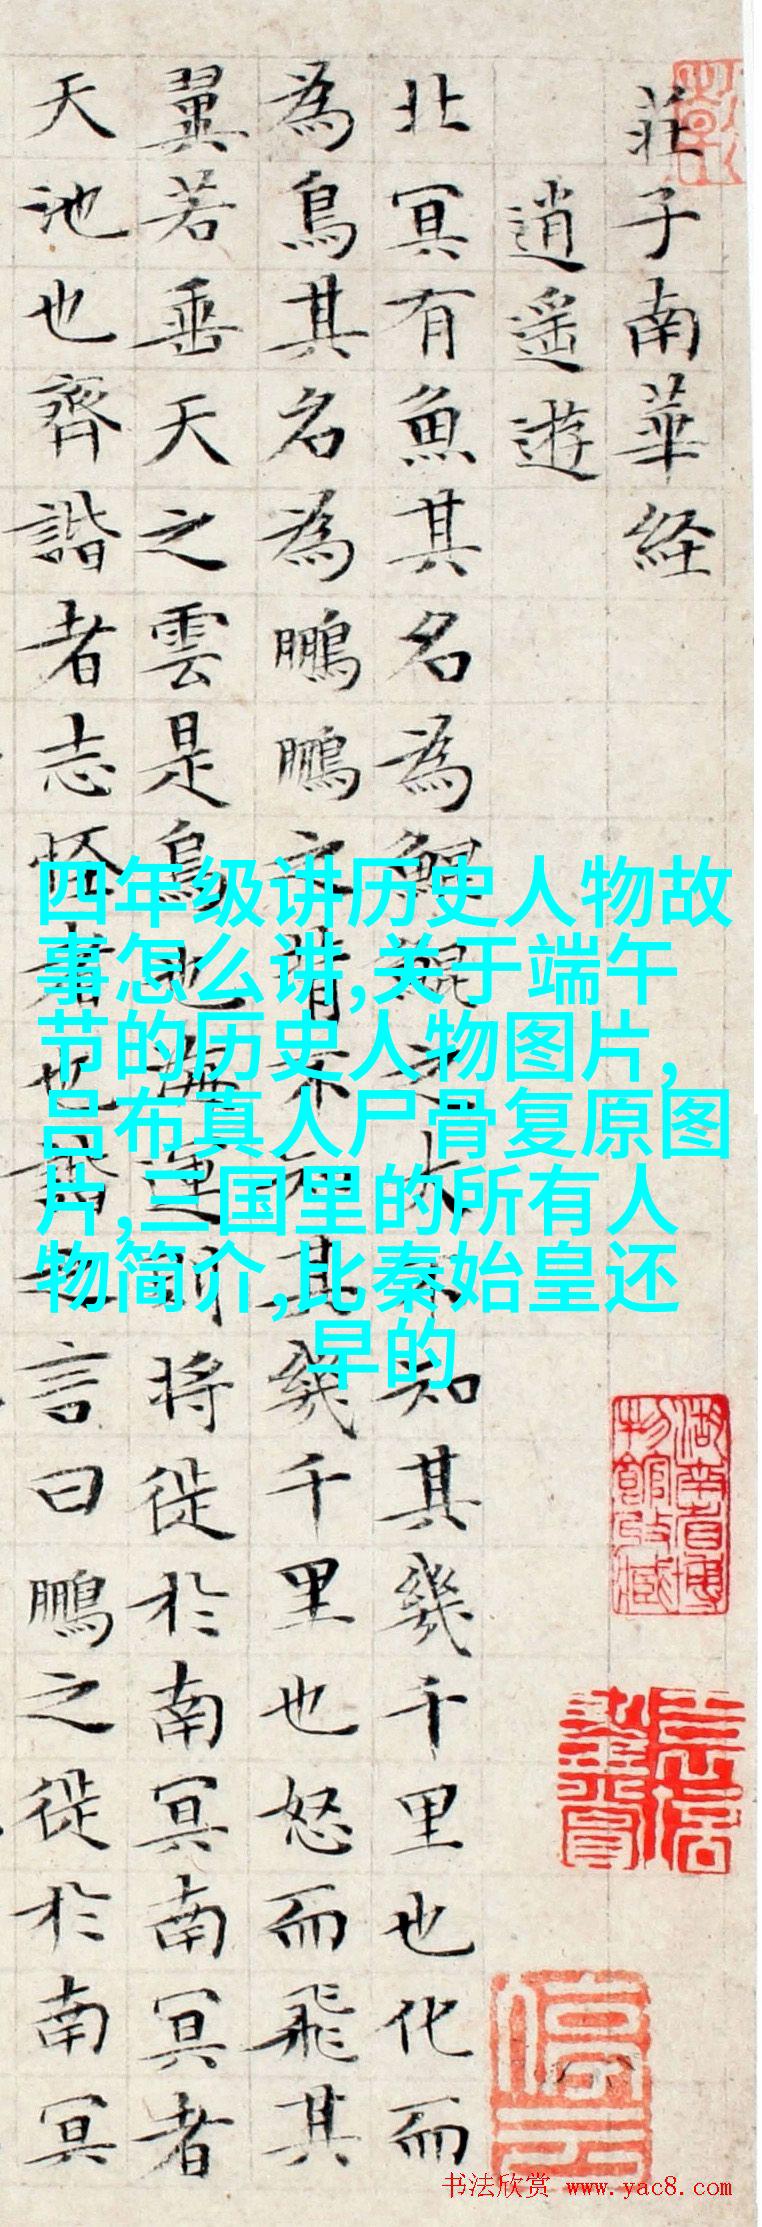 莊子南華経
逍遥遊
北冥有魚其名為鯤鯤之大不知其幾千里也化而
為鳥其名為鵬鵬之背不知其幾千里也怒而飛其
翼若垂天之雲是鳥也海運則將徙於南冥南冥者
天池也齊諧者志怪者也諧之言曰鵬之徙於南冥
四年级讲历史人物故
事怎么讲,关于端午
节的历史人物图片,
吕布真人尸骨复原图
片,三国里的所有人
物简介,比秦始皇还
早的
湖南省博
物館收藏
书法欣赏 www.yac8.com